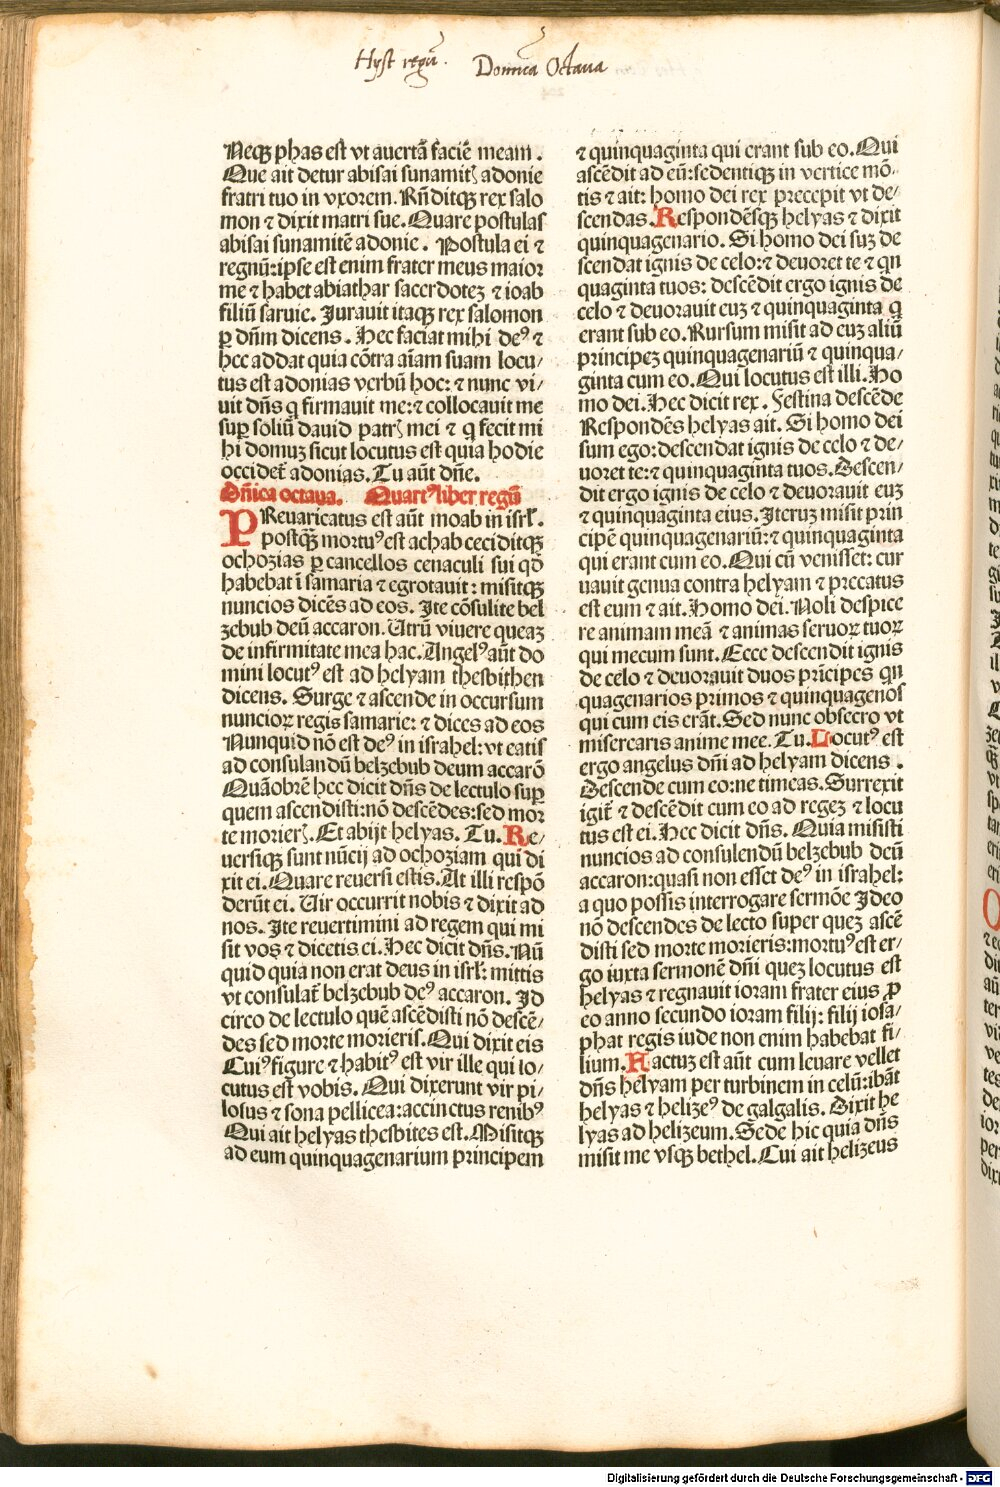 Hyst regū. Domīca Octaua
Neqꝫ phas est vt auertā faciē meam.
Que ait detur abisai sunamitꝭ adonie
fratri tuo in vxorem. Rn̄ditqꝫ rex salo
mon ⁊ dixit matri sue. Quare postulas
abisai sunamitē adonie. Postula ei ⁊
regnū: ipse est enim frater meus maior
me ⁊ habet abiathar sacerdoteꝫ ⁊ ioab
filiū saruie. Jurauit itaqꝫ rex salomon
ꝑ dn̄m dicens. Hec faciat mihi deꝰ ⁊
hec addat quia cōtra aīam suam locu/
tus est adonias verbū hoc: ⁊ nunc vi/
uit dn̄s q̄ firmauit me: ⁊ collocauit me
suꝑ soliū dauid patrꝭ mei ⁊ q̄ fecit mi
hi domuꝫ sicut locutus est quia hodie
occidet̄ adonias. Tu aūt dn̄e.
Dn̄ica octaua. Quartꝰ liber regū
PReuaricatus est aūt moab in isrl̄.
postqꝫ̄ mortuꝰ est achab ceciditqꝫ
ochozias ꝑ cancellos cenaculi sui qd̄
habebat ī samaria ⁊ egrotauit: misitqꝫ
nuncios dicēs ad eos. Ite cōsulite bel
zebub deū accaron. Utrū viuere queaꝫ
de infirmitate mea hac. Angelꝰ aūt do
mini locutꝰ est ad helyam thesbithen
dicens. Surge ⁊ ascende in occursum
nuncioꝝ regis samarie: ⁊ dices ad eos
Nunquid nō est deꝰ in israhel: vt eatis
ad consulandū belzebub deum accarō
Quāobrē hec dicit dn̄s de lectulo suꝑ
quem ascendisti: nō descēdes: sed mor
te morierꝭ. Et abijt helyas. Tu. Re/
uersiqꝫ sunt nūcij ad ochoziam qui di
xit ei. Quare reuersi estis. At illi respō
derūt ei. Uir occurrit nobis ⁊ dixit ad
nos. Ite reuertimini ad regem qui mi
sit vos ⁊ dicetis ei. Hec dicit dn̄s. Nū
quid quia non erat deus in isrl̄: mittis
vt consulat̄ belzebub deꝰ accaron. Id
circo de lectulo quē ascēdisti nō descē/
des sed morte morieris. Qui dixit eis
Cuiꝰ figure ⁊ habitꝰ est vir ille qui lo/
cutus est vobis. Qui dixerunt vir pi/
losus ⁊ sona pellicea: accinctus renibꝰ
Qui ait helyas thesbites est. Misitqꝫ
ad eum quinquagenarium principem
⁊ quinquaginta qui erant sub eo. Qui
ascēdit ad eū: sedentiqꝫ in vertice mō/
tis ⁊ ait: homo dei rex precepit vt de/
scendas. Respondēsqꝫ helyas ⁊ dixit
quinquagenario. Si homo dei suꝫ de
scendat ignis de celo: ⁊ deuoret te ⁊ qn
quaginta tuos: descēdit ergo ignis de
celo ⁊ deuorauit euꝫ ⁊ quinquaginta q̄
erant sub eo. Rursum misit ad euꝫ aliū
principeꝫ quinquagenariū ⁊ quinqua/
ginta cum eo. Qui locutus est illi. Ho
mo dei. Hec dicit rex. Festina descēde
Respondēs helyas ait. Si homo dei
sum ego: descendat ignis de celo ⁊ de/
uoret te: ⁊ quinquaginta tuos. Descen/
dit ergo ignis de celo ⁊ deuorauit euꝫ
⁊ quinquaginta eius. Iteruꝫ misit prin
cipē quinquagenariū: ⁊ quinquaginta
qui erant cum eo. Qui cū venisset: cur
uauit genua contra helyam ⁊ precatus
est eum ⁊ ait. Homo dei. Noli despice
re animam meā ⁊ animas seruoꝝ tuoꝝ
qui mecum sunt. Ecce descendit ignis
de celo ⁊ deuorauit duos prīcipes qn
quagenarios primos ⁊ quinquagenos
qui cum eis erāt. Sed nunc obsecro vt
miserearis anime mee. Tu. Locutꝰ est
ergo angelus dn̄i ad helyam dicens.
Descende cum eo: ne timeas. Surrexit
igit̄ ⁊ descēdit cum eo ad regeꝫ ⁊ locu
tus est ei. Hec dicit dn̄s. Quia misisti
nuncios ad consulendū belzebub deū
accaron: quasi non esset deꝰ in israhel:
a quo possis interrogare sermōe Ideo
nō descendes de lecto super queꝫ ascē
disti sed morte morieris: mortuꝰ est er/
go iuxta sermonē dn̄i queꝫ locutus est
helyas ⁊ regnauit ioram frater eius ꝓ
eo anno secundo ioram filij: filij iosa/
phat regis iude non enim habebat fi/
lium. Factus est aūt cum leuare vellet
dn̄s helyam per turbinem in celū: ibāt
helyas ⁊ helizeꝰ de galgalis. Dixit he
lyas ad helizeum. Sede hic quia dn̄s
misit me vsqꝫ bethel. Cui ait helizeus
Digitalisierung gefördert durch die Deutsche Forschungsgemeinschaft - DFG